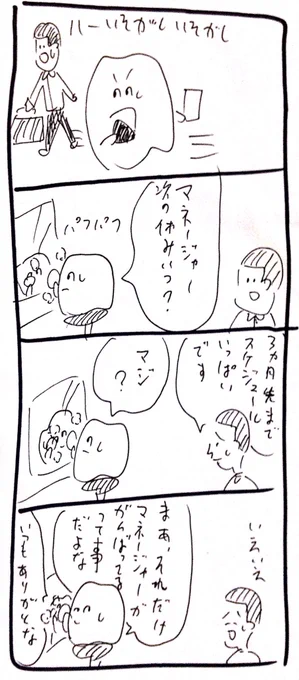 ハーいそがしいそがし
マネージャー
次の休みいつ？
パフパフ
3ヵ月先まで
スケジュール
いっぱい
です
マジ
？
いえいえ
まあ、それだけ
マネージャーが
がんばってる
って事
だよな
いつもありがとな